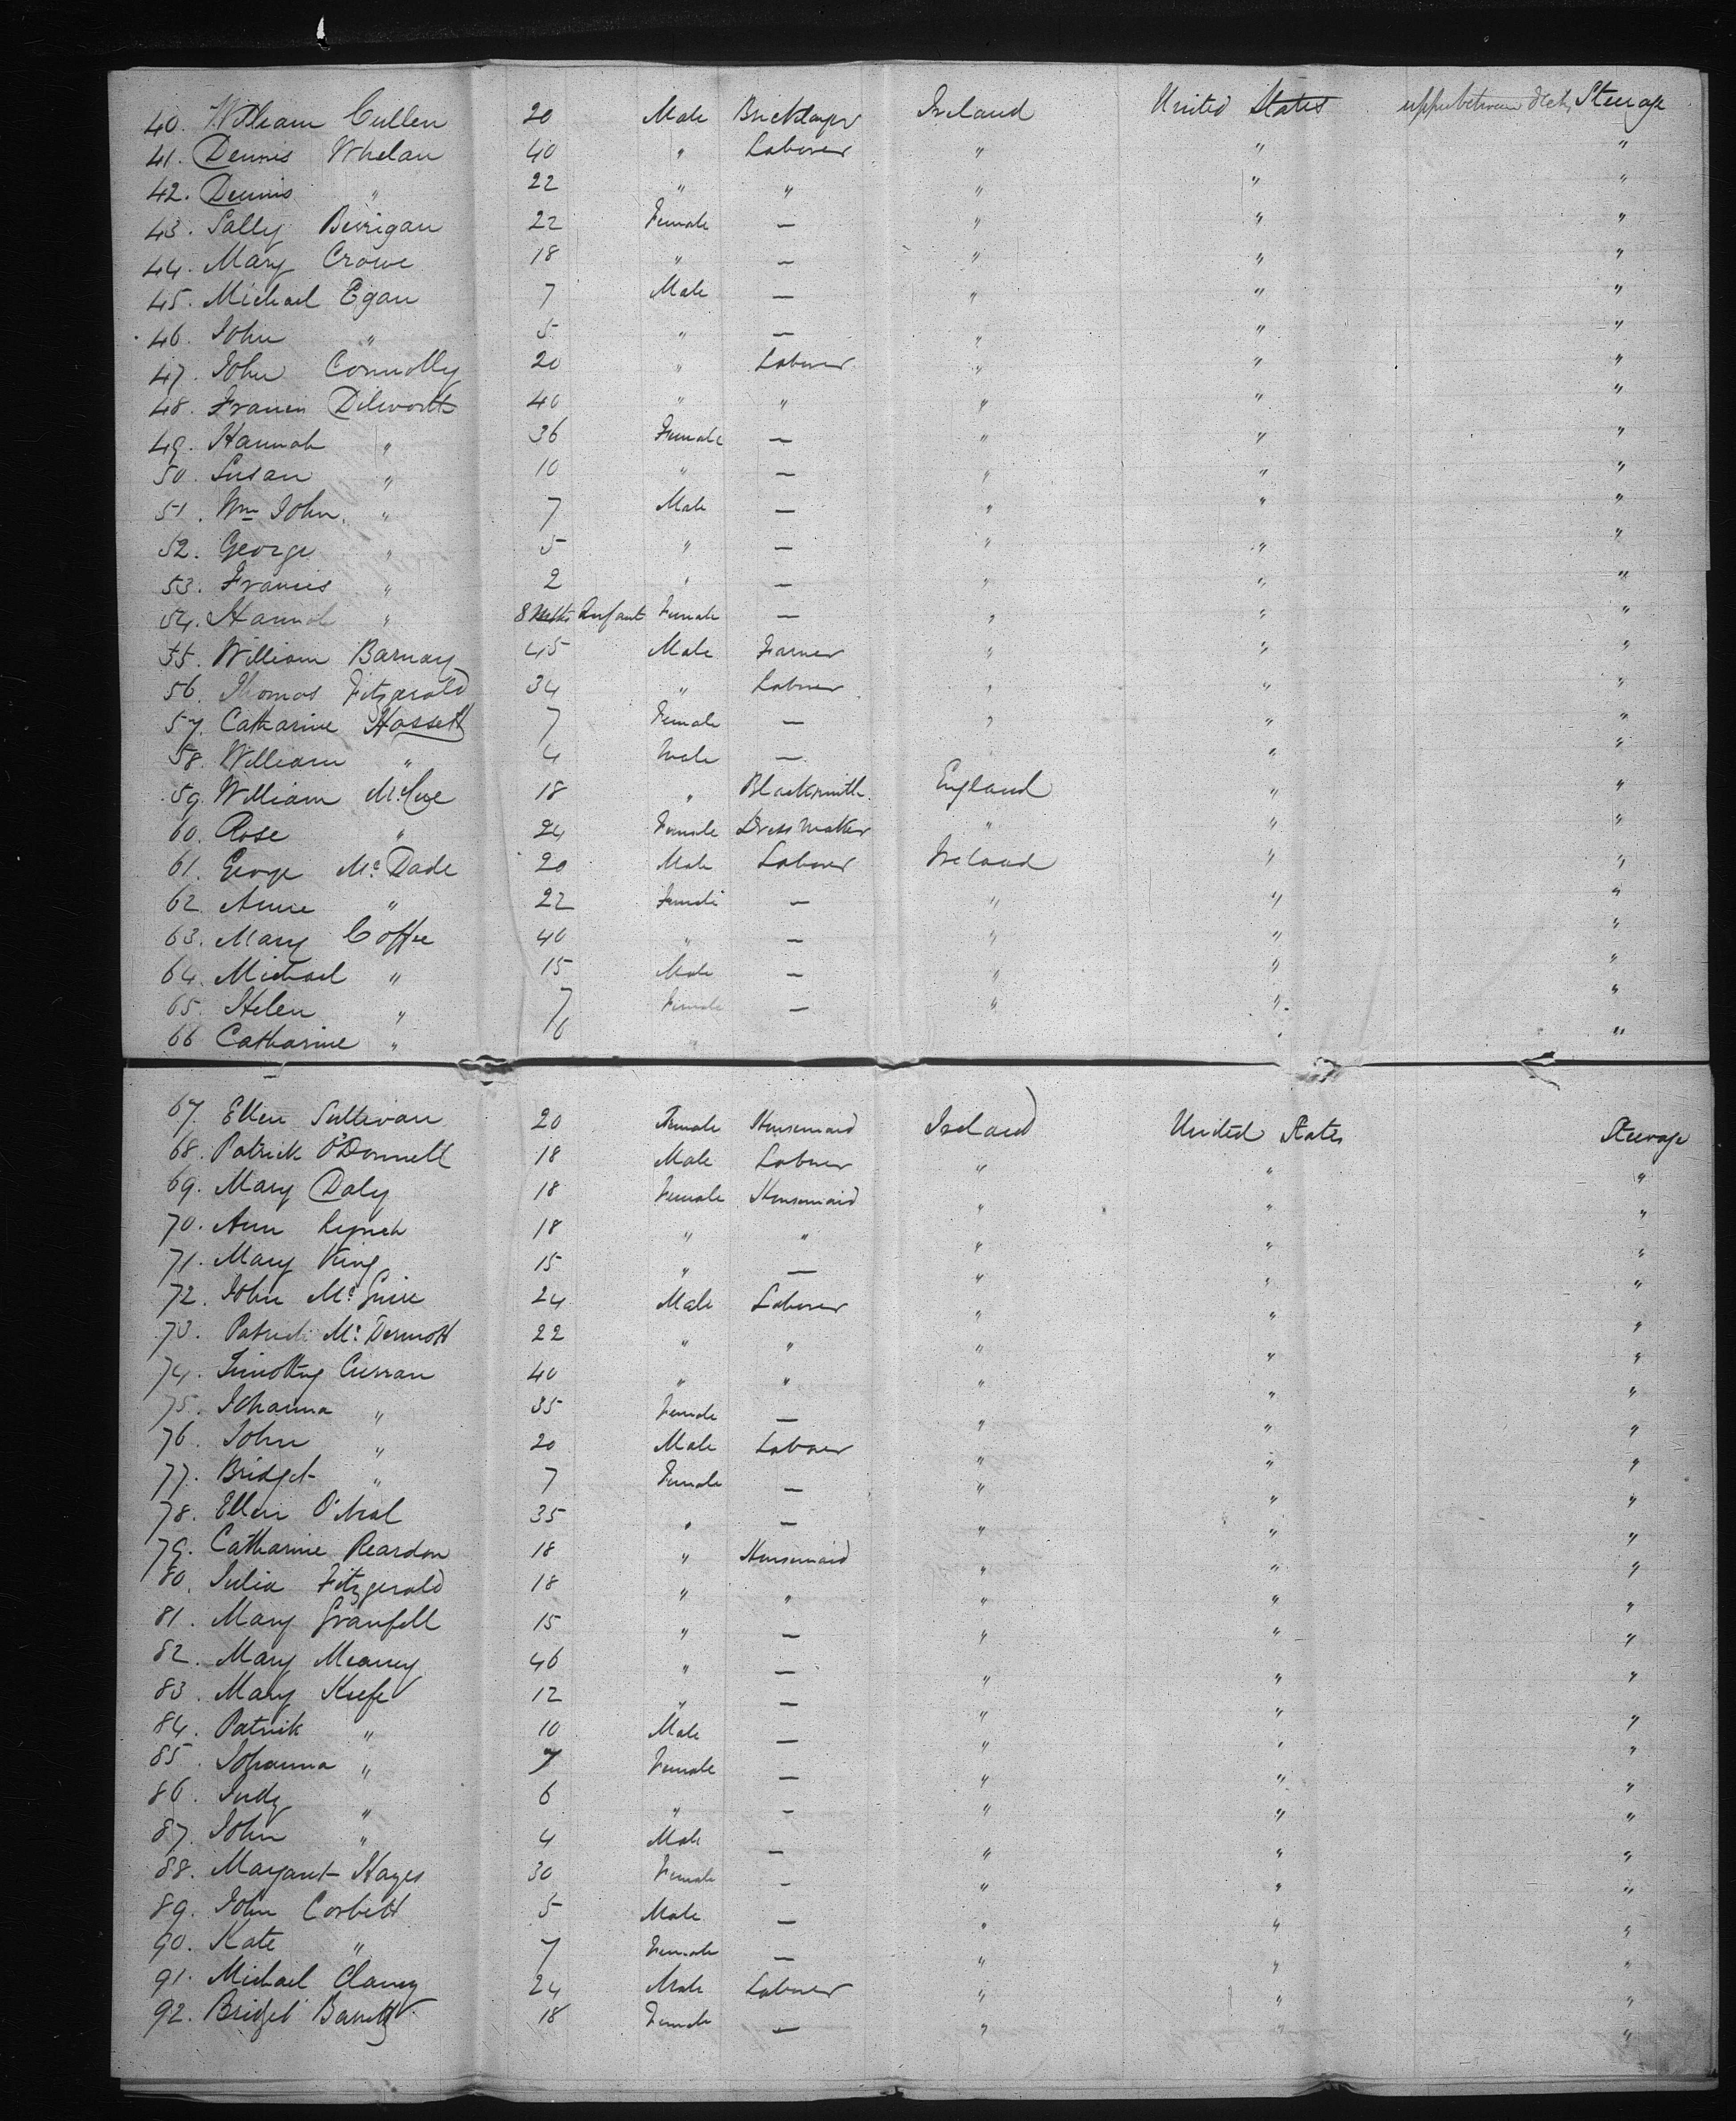 40. William Cullen 20 Male Bricklayer Ireland United States upper between decks Steerage
41. Dennis Whelan 40 " Laborer " " "
42. Dennis " 22 " " " " "
43. Sally Berrigan 22 Female — " " "
44. Mary Crowe 18 " — " " "
45. Michael Egan 7 Male — " " "
46. John " 5 " — " " "
47. John Connolly 20 " Laborer " " "
48. Francis Dilworth 40 " " " " "
49. Hannah " 36 Female — " " "
50. Susan " 10 " — " " "
51. Wm John " 7 Male — " " "
52. George " 5 " — " " "
53. Francis " 2 " — " " "
54. Hannah " 8 Mths Infant Female — " " "
55. William Barnay 45 Male Farmer " " "
56. Thomas Fitzgerald 34 " Laborer " " "
57. Catharine Hassett 7 Female — " " "
58. William " 4 Male — " "
59. William 18 " Blacksmith England " "
60. Rose " 24 Female Dress Maker " " "
61. George Mc Dade 20 Male Laborer Ireland " "
62. Anne " 22 Female — " " "
63. Mary Coffee 40 " — " " "
64. Michael " 15 Male — " " "
65. Helen " 7 Female — " " "
66 Catharine " 6 " "
67. Ellen Sullivan 20 Female Housemaid Ireland United States Steerage
68. Patrick O'Donnell 18 Male Laborer " " "
69. Mary Daly 18 Female Housemaid " " "
70. Ann Lynch 18 " " " " "
71. Mary King 15 " — " " "
72. John Mc Guire 24 Male Laborer " " "
73. Patrick Mc Dermott 22 " " " " "
74. Timothy Curran 40 " " " " "
75. Johanna " 35 Female — " " "
76. John " 20 Male Laborer " " "
77. Bridget " 7 Female — " " "
78. Ellen O'Neal 35 " — " " "
79. Catharine Reardon 18 " Housemaid " " "
80. Julia Fitzgerald 18 " " " " "
81. Mary Granfell 15 " — " " "
82. Mary Meaney 46 " — " " "
83. Mary Keefe 12 " — " " "
84. Patrick " 10 Male — " " "
85. Johanna " 7 Female — " " "
86. Judy " 6 " — " " "
87. John " 4 Male — " " "
88. Margaret Hayes 30 Female — " " "
89. John Corbett 5 Male — " " "
90. Kate " 7 Female — " " "
91. Michael Clancy 24 Male Laborer " " "
92. Bridget Barrett 18 Female — " " "